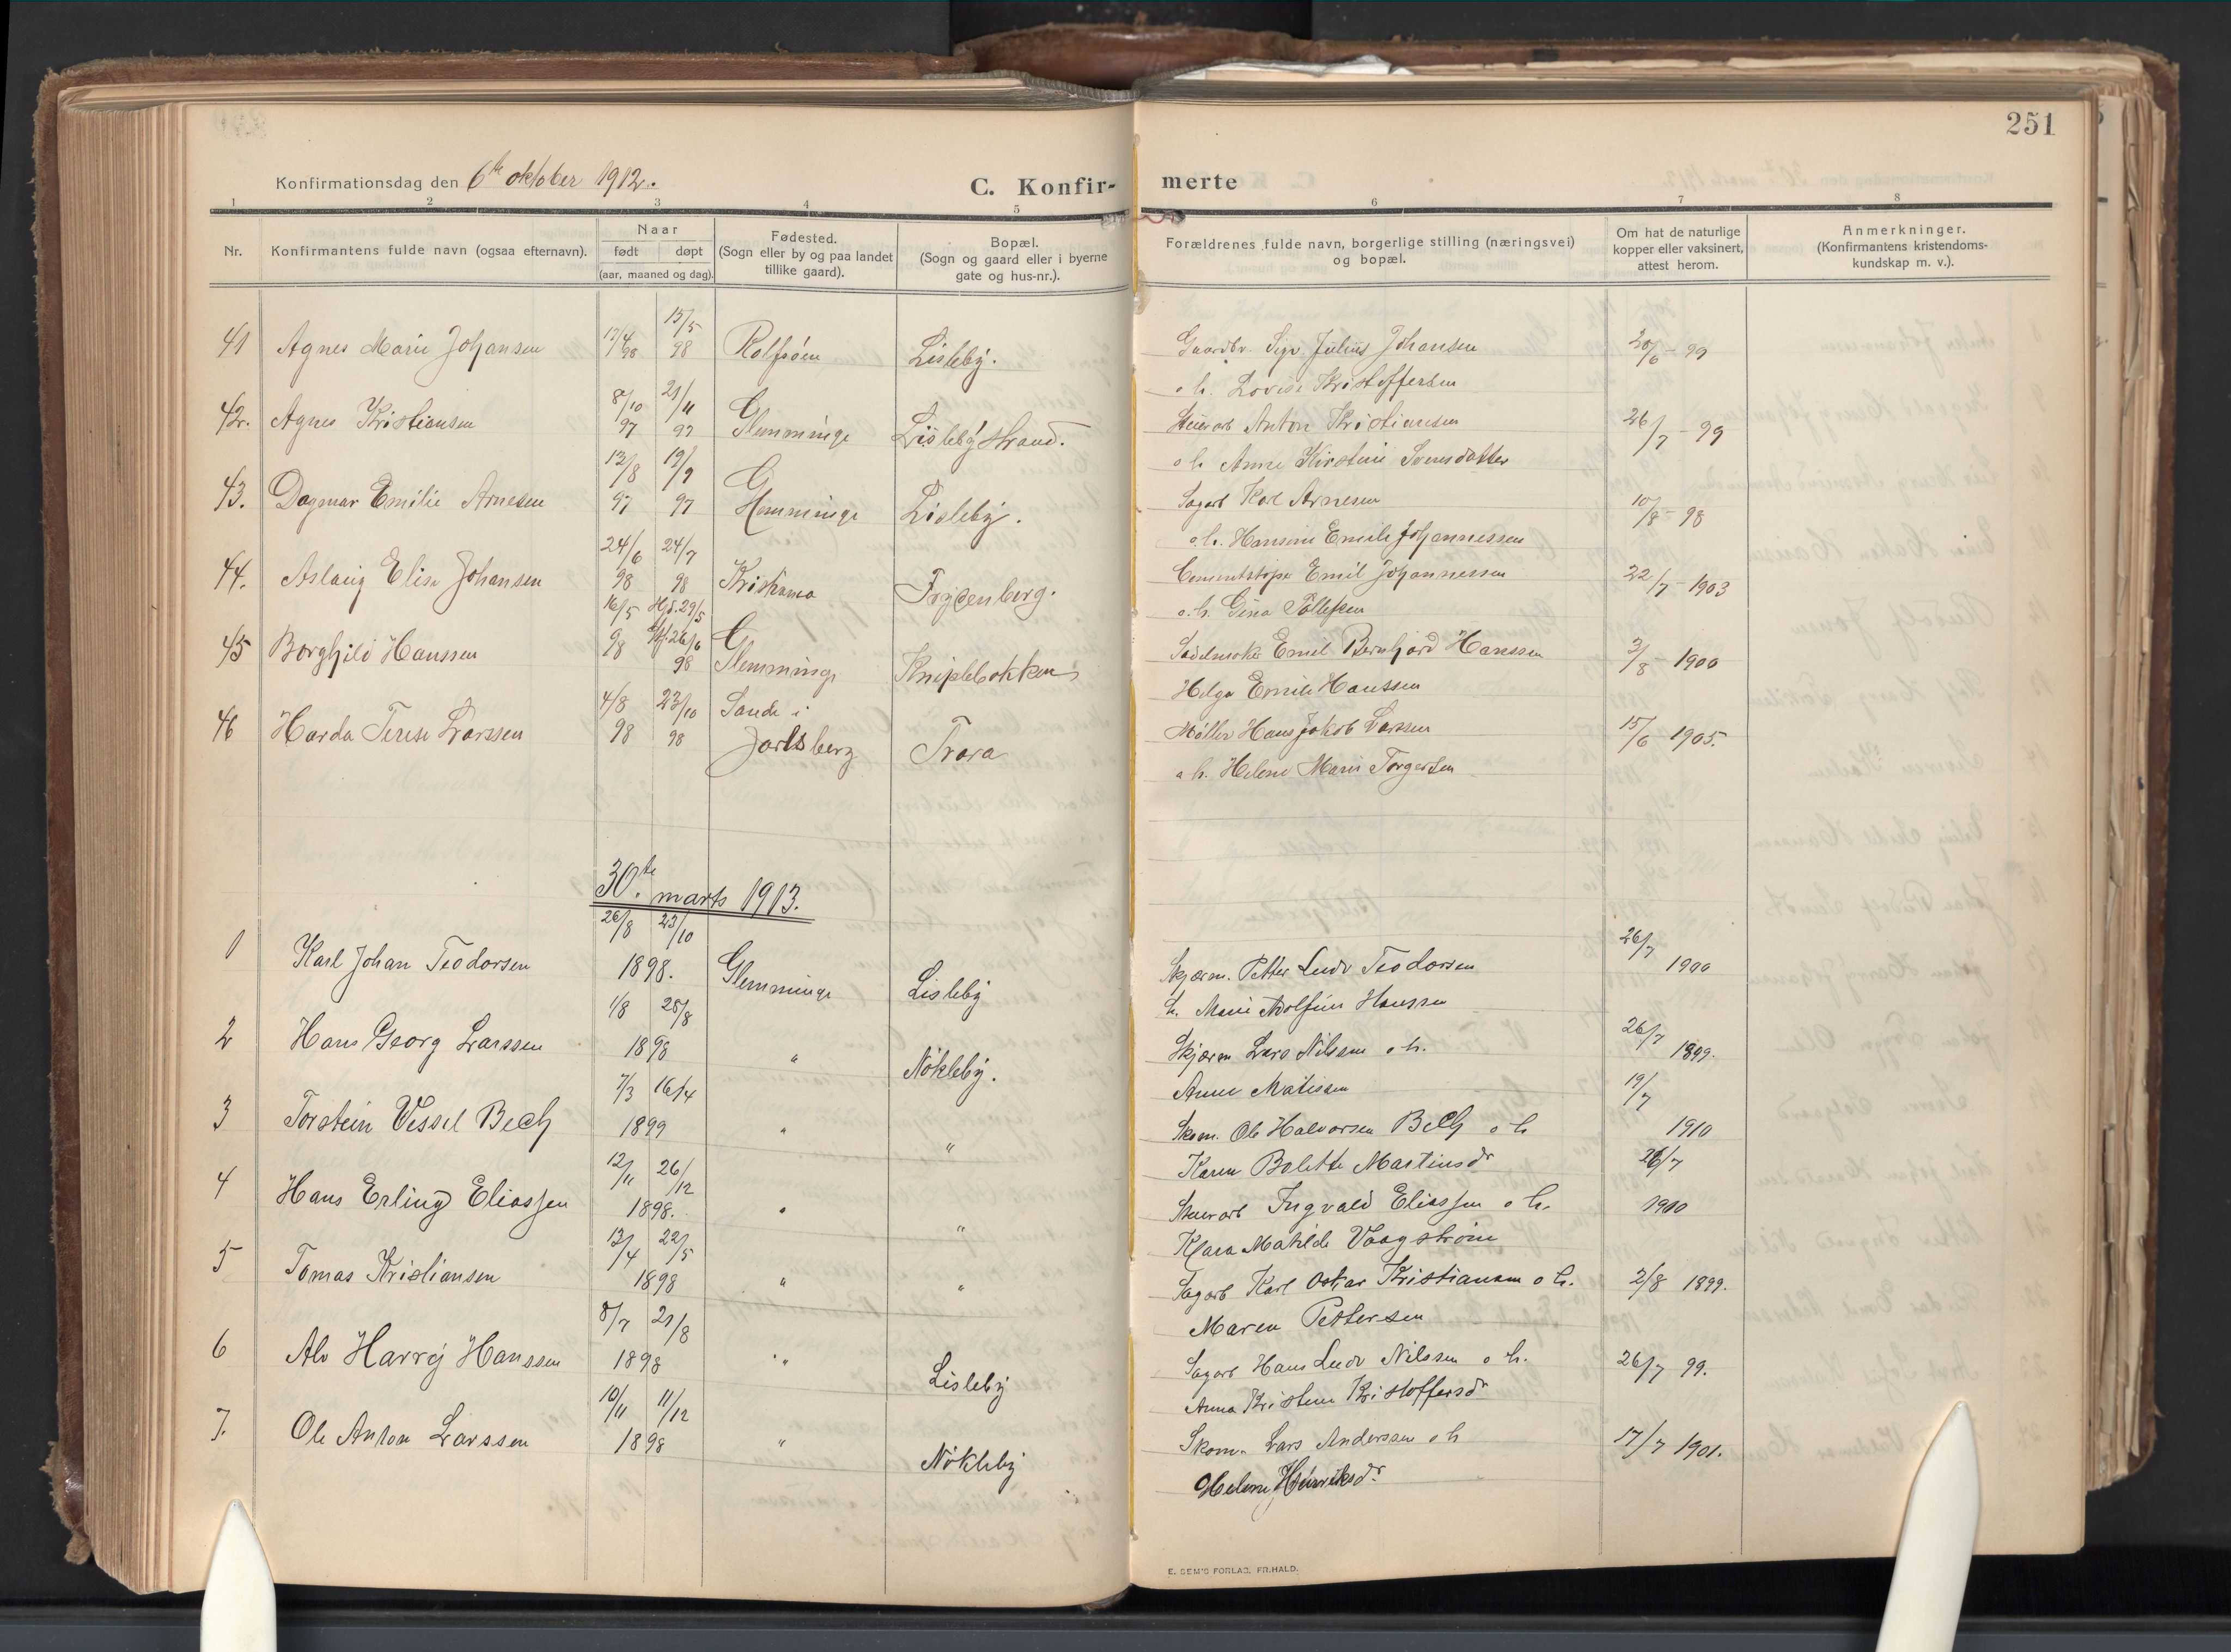 251
Konfirmationsdag den 6te oktober 1912.
C. Konfir- merte
1 2 3 4 5 6 7 8
Nr.
Konfirmantens fulde navn (ogsaa efternavn).
Naar
født døpt
(aar, maaned og dag).
Fødested.
(Sogn eller by og paa landet
tillike gaard).
Bopæl.
(Sogn og gaard eller i byerne
gate og hus-nr.).
Forældrenes fulde navn, borgerlige stilling (næringsvei)
og bopæl.
Om hat de naturlige
kopper eller vaksinert,
attest herom.
Anmerkninger.
(Konfirmantens kristendoms-
kundskap m. v.).
41 Agnes Marie Johansen 17/4 98 15/5 98 Rolfsöen Lisleby. Gaardbr. Sigv. Julius Johansen 20/6 - 99
o h. Lovise Kristoffersen
42. Agnes Kristiansen 8/10 97 21/11 97 Glemminge Lislebystrand. Anton Kristiansen 26/7 - 99
o h. Anne Kirstine Svensdatter
43. Dagmar Emilie Arnesen 13/8 97 19/9 97 Glemminge Lisleby. Sagarb Karl Arnesen 10/8 - 98
o h. Hansine Emilie Johannessen
44. Aslaug Elise Johansen 24/6 98 24/7 98 Kristiania Frydenberg. Cementstøper Emil Johannessen 22/7 - 1903
o. h. Gina Pållesen
45 Borghild Hanssen 16/5 98 Hjd. 29/5 26/6 98 Glemminge Kniplebakken Sadelmaker Emil Bernhard Hanssen 3/8 - 1900
Helga Emilie Hanssen
46 Harda Terese Larssen 4/8 98 23/10 98 Sande i
Jarlsberg Trara Møller Hans Jakob Larssen 15/6 1905.
o h. Helene Marie Torgersen
30.te marts 1913.
1 Karl Johan Teodorsen 26/8 23/10 1898. Glemminge Lisleby Skjærm. Petter Ludv Teodorsen 26/7 1900
h. Marie Adolfine Hanssen
2 Hans Georg Larssen 1/8 28/8 1898 " Nökleby. Skjærm Lars Nilssen o h. 26/7 1899.
Anne Matissen
3 Torstein Vessel Bech 7/3 16/4 1899 " " Skom. Ole Halvorsen Bech o h 19/7 1910
Karen Bolette Martinsdr
4 Hans Erling Eliassen 12/11 26/12 1898. " " Ingvald Eliassen o h. 26/7 1900
Klara Matilde Vaagström
5 Tomas Kristiansen 13/4 22/5 1898 " " Sagarb Karl Oskar Kristiansen o h. 2/8 1899.
Maren Pettersen
6 Alv Harry Hanssen 8/7 21/8 1898 " Lisleby Sagarb Hans Ludv Nilssen o h. 26/7 99.
Anna Kristine Kristoffersdr
7. Ole Anton Larssen 10/11 11/12 1898 " Nökleby Skom. Lars Anderssen o h 17/7 1901.
Helene Henriksdr.
E. SEM'S FORLAG, FR.HALD.